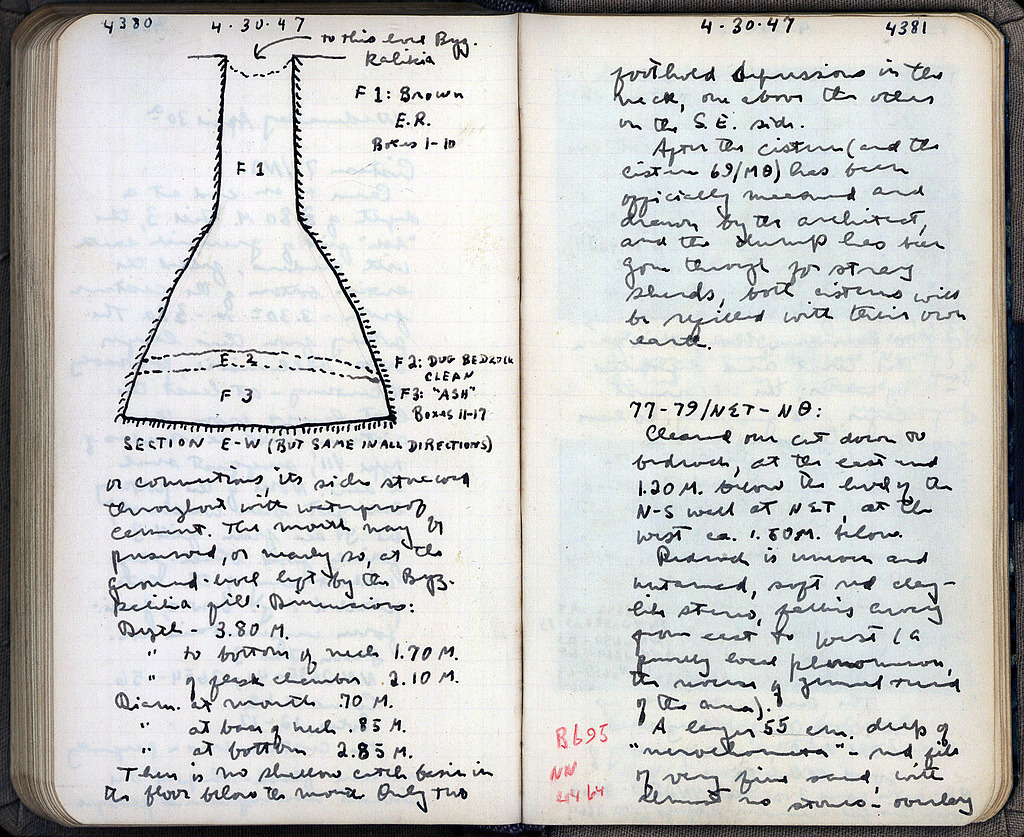 4380
4·30·47
to this level Byz.
Kalikia
F 1: Brown
E.R.
Boxes 1-10
F 1
F 2
F 2: DUG BEDROCK
CLEAN
F 3
F3: "ASH"
Boxes 11-17
SECTION E-W (BUT SAME IN ALL DIRECTIONS)
or connections, its sides stuccoed
throughout with waterproof
cement. The mouth may be
preserved, or nearly so, at the
ground-level left by the Byz.
fill. Dimensions:
Depth - 3.80 M.
" to bottom of neck 1.70 M.
" of flask chamber 2.10 M.
Diam. at mouth .70 M.
" at base of neck .85 M.
" at bottom 2.85 M.
There is no shallow catch basin in
the floor below the mouth. Only two
4·30·47
4381
foothold depressions in the
neck, one above the other
on the S.E. side.
After the cistern (and the
cistern 69/ΜΘ) has been
officially measured and
drawn by the architect,
and the dump has been
gone through for stray
sherds, both cisterns will
be refilled with their own
earth.
77-79/ΝΣΤ-ΝΘ:
Cleared our cut down to
bedrock, at the east end
1.20 M. below the level of the
N-S wall at ΝΣΤ, at the
west ca. 1.80 M. below.
Bedrock is uneven and
untamed, soft red clay-
like stereo, falling away
from east to west (a
purely local phenomenon,
the reverse of general trend
of the area).
A layer 55 cm. deep of
"nerochomata" - red fill
of very fine sand, with
almost no stones - overlay
B695
NN
4464